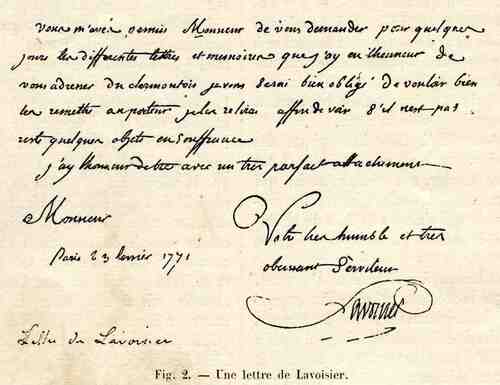 vous m'avés permis Monsieur de vous demander pour quelques
jours les differentes lettres et memoires que j'ay eu lhonneur de
vous adresser du clermontois je vous serai bien obligé De vouloir bien
les remettre au porteur je les relirai affin de voir s'il nest pas
resté quelques objets en souffrance
j'ay lhonneur detre avec un tres parfait attachement
Monsieur
Votre tres humble et tres
Paris 23 fevrier 1771
obeissant Serviteur
Lavoisier
Lettre de Lavoisier
Fig. 2. — Une lettre de Lavoisier.